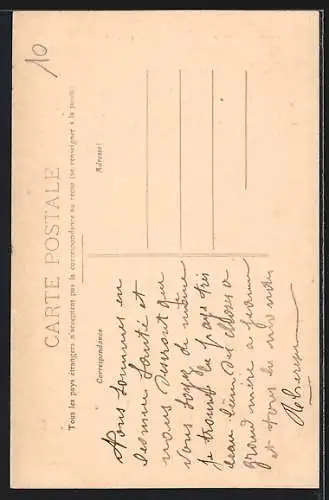 10
CARTE POSTALE
Tous les pays étrangers n'acceptent pas la correspondance au recto (se renseigner à la poste)
Correspondance
Adresse
Nous sommes en
bonne santé et
nous desiront que
vous soyez de même
Je trouve le pays très
beau bien des choses a
grand mère a Jeanne
et tous les